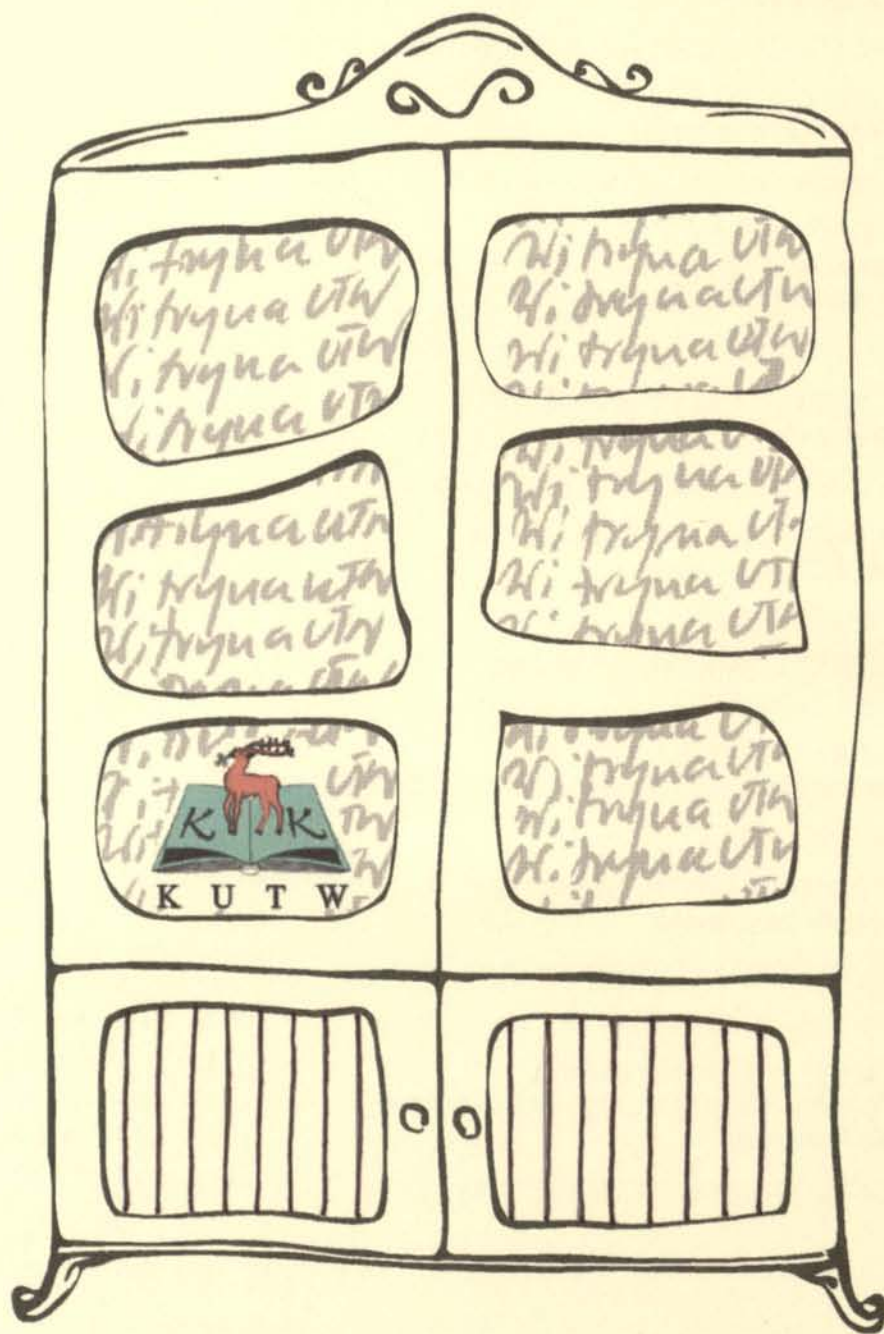 Witryna UTW
Witryna UTW
Witryna UTW
Witryna UTW
Witryna UTW
Witryna UTW
Witryna UTW
Witryna UTW
Witryna UTW
Witryna UTW
Witryna UTW
Witryna UTW
Witryna UTW
Witryna UTW
K K
KUTW
Witryna UTW
Witryna UTW
Witryna UTW